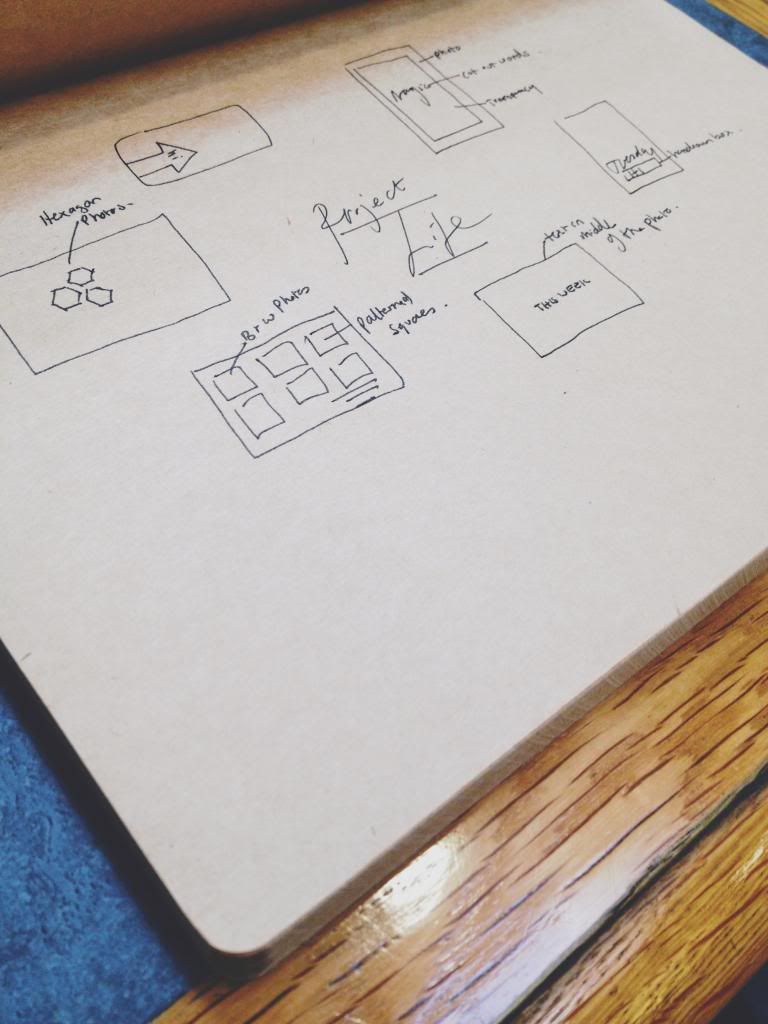 photo
cut out words.
Magic
Transparency
Hexagon
Photos.
Project
Life
text in
middle
of the photo.
THIS WEEK
B+W Photos
Patterned
Squares.